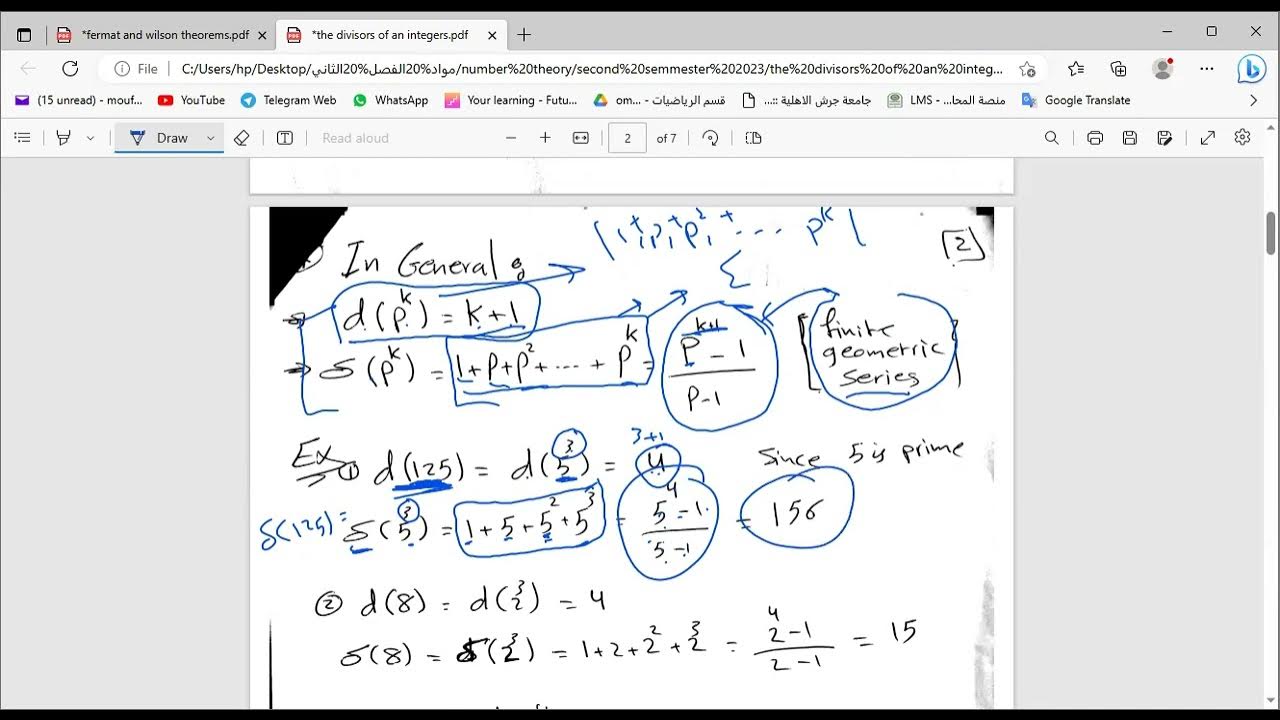 *fermat and wilson theorems.pdf
*the divisors of an integers.pdf
File
C:/Users/hp/Desktop/مواد%20الفصل%20الثاني/number%20theory/second%20semmester%202023/the%20divisors%20of%20an%20integ...
(15 unread) - mouf...
YouTube
Telegram Web
WhatsApp
Your learning - Futu...
om... - قسم الرياضيات
جامعة جرش الاهلية ::...
LMS - منصة المحا...
Google Translate
Draw
Read aloud
2 of 7
1 + p + p² + ... p^k
[2]
In General :
d(p^k) = k+1
σ(p^k) = 1+p+p²+ ... + p^k = (p^(k+1) - 1)/(p-1) [finite geometric series]
3+1
Ex ① d(125) = d(5³) = 4 Since 5 is prime
σ(125) = σ(5³) = 1 + 5 + 5² + 5³ = (5⁴-1)/(5-1) = 156
② d(8) = d(2³) = 4
σ(8) = σ(2³) = 1+2+2²+2³ = (2⁴-1)/(2-1) = 15